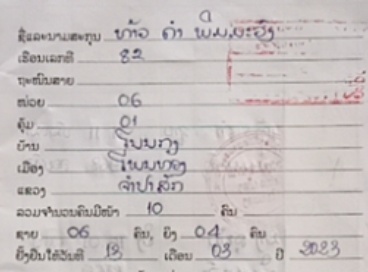 ຊື່ແລະນາມສະກຸນ ທ້າວ ຄຳ
ເຮືອນເລກທີ 82
ຖະໜົນສາຍ
ໜ່ວຍ 06
ຄຸ້ມ 01
ບ້ານ ໂພນງາມ
ເມືອງ ໂພນທອງ
ແຂວງ ຈຳປາສັກ
ລວມຈຳນວນຄົນມີໜ້າ 10 ຄົນ
ຊາຍ 06 ຄົນ, ຍິງ 04 ຄົນ
ຢັ້ງຢືນໃຫ້ວັນທີ 13 ເດືອນ 03 ປີ 2023